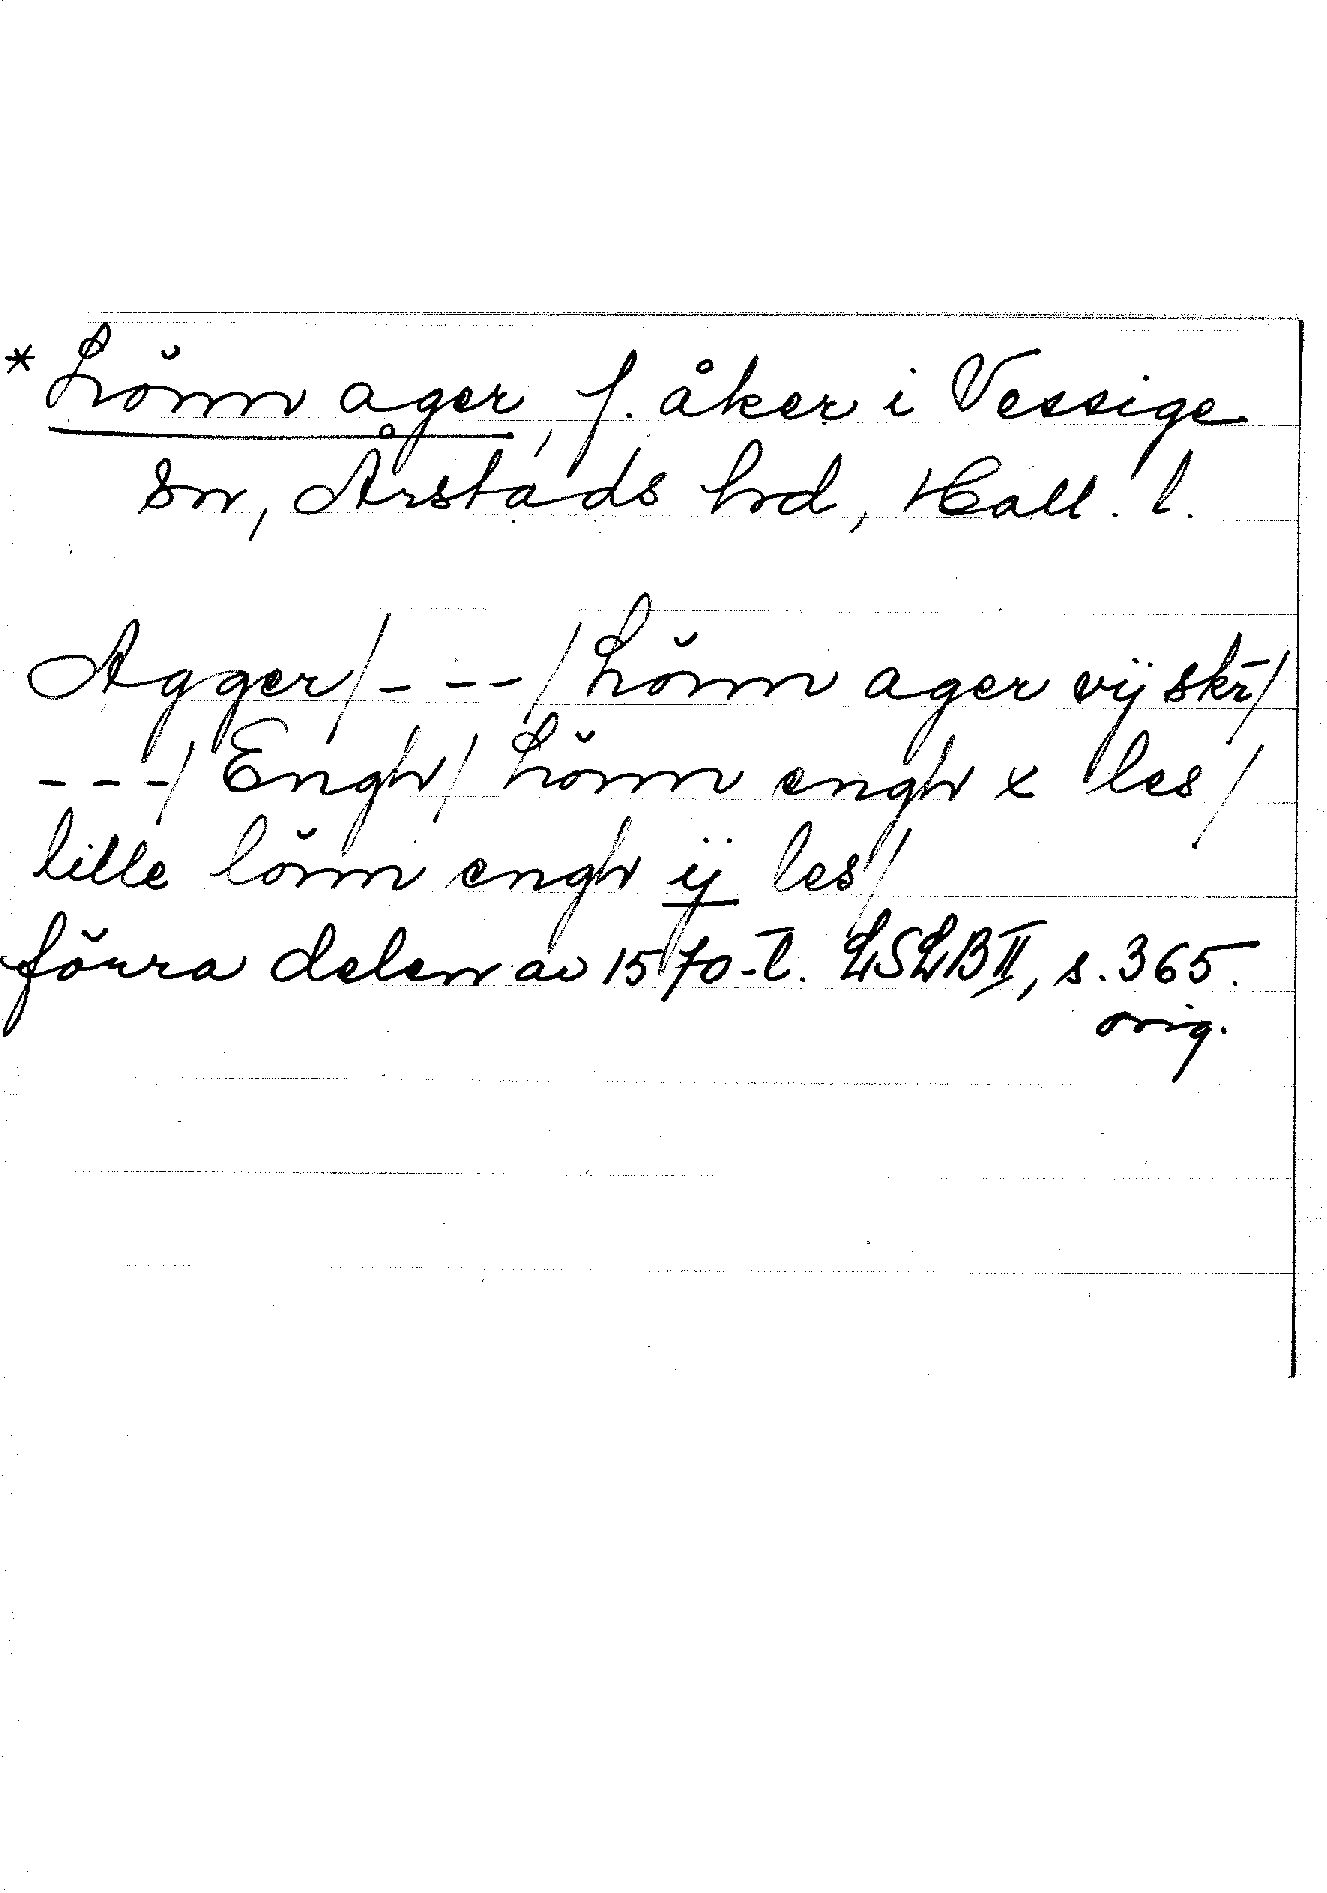 *Lönn ager, f. åker i Vessige
sn, Årstads hd, Hall. l.
Agger/ - - - /Lönn ager vij skr/
- - - / Engh/ Lönn engh x les/
lille lönn engh ij les/
förra delen av 1570-t. LSLB II, s. 365.
orig.